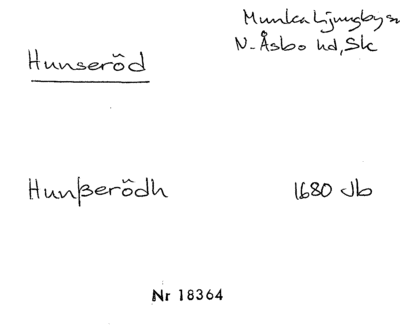 Munka Ljungby sn
N. Åsbo hd, Sk
Hunseröd
Hunßerödh 1680 Jb
Nr 18364